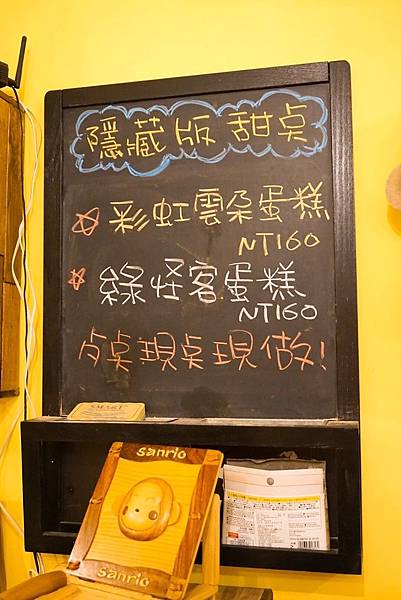 隱藏版甜点
彩虹雲朵蛋糕
NT160
綠怪客蛋糕
NT160
点現点現做!
SMART
sanrio
sanrio